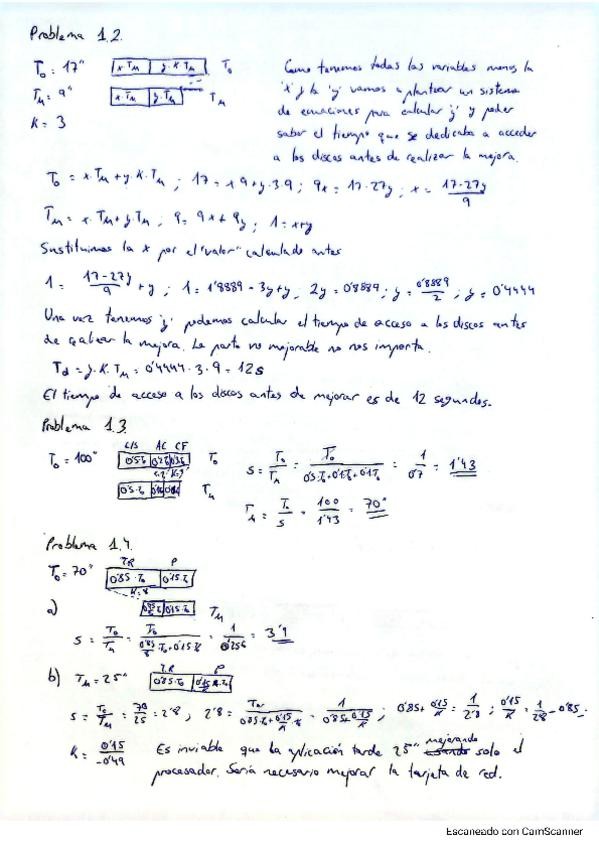 Problema 1.2.
T₀ = 17" x.Tm y.K.Tm T₀
Tm = 9" x.Tm y.Tm Tm
K = 3
Como tenemos todas las variables menos la
'x' y la 'y' vamos a plantear un sistema
de ecuaciones para calcular 'y' y poder
saber el tiempo que se dedicaba a acceder
a los discos antes de realizar la mejora.
T₀ = x.Tm + y.K.Tm ; 17 = x9 + y.3.9 ; 9x = 17-27y ; x = 17-27y / 9
Tm = x.Tm + y.Tm ; 9 = 9x + 9y ; 1 = x+y
Sustituimos la x por el "valor" calculado antes
1 = 17-27y / 9 + y ; 1 = 1'8889 - 3y + y ; 2y = 0'8889 ; y = 0'8889 / 2 ; y = 0'4444
Una vez tenemos 'y' podemos calcular el tiempo de acceso a los discos antes
de realizar la mejora. La parte no mejorable no nos importa.
Td = y.K.Tm = 0'4444 . 3 . 9 = 12s
El tiempo de acceso a los discos antes de mejorar es de 12 segundos.
Problema 1.3.
L/S AC CF
T₀ = 100" 0'5.T₀ T₀
0'5.T₀ Tm
S = T₀ / Tm = T₀ / 0'5.T₀+0'1T₀+0'1T₀ = 1 / 0'7 = 1'43
Tm = T₀ / S = 100 / 1'43 = 70"
Problema 1.4.
TR P
T₀ = 70" 0'85.T₀ 0'15.T₀
K=8
a) 0'85/8 T₀ 0'15.T₀ Tm
S = T₀ / Tm = T₀ / 0'85/8 T₀ + 0'15.T₀ = 1 / 0'256 = 3'9
b) Tm = 25" TR P
0'85.T₀ 0'15/K.T₀
S = T₀ / Tm = 70 / 25 = 2'8 ; 2'8 = T₀ / 0'85.T₀+0'15/K.T₀ = 1 / 0'85+0'15/K ; 0'85+ 0'15/K = 1 / 2'8 ; 0'15/K = 1 / 2'8 - 0'85
K = 0'15 / -0'49 Es inviable que la aplicación tarde 25" mejorando solo el
procesador. Sería necesario mejorar la tarjeta de red.
Escaneado con CamScanner